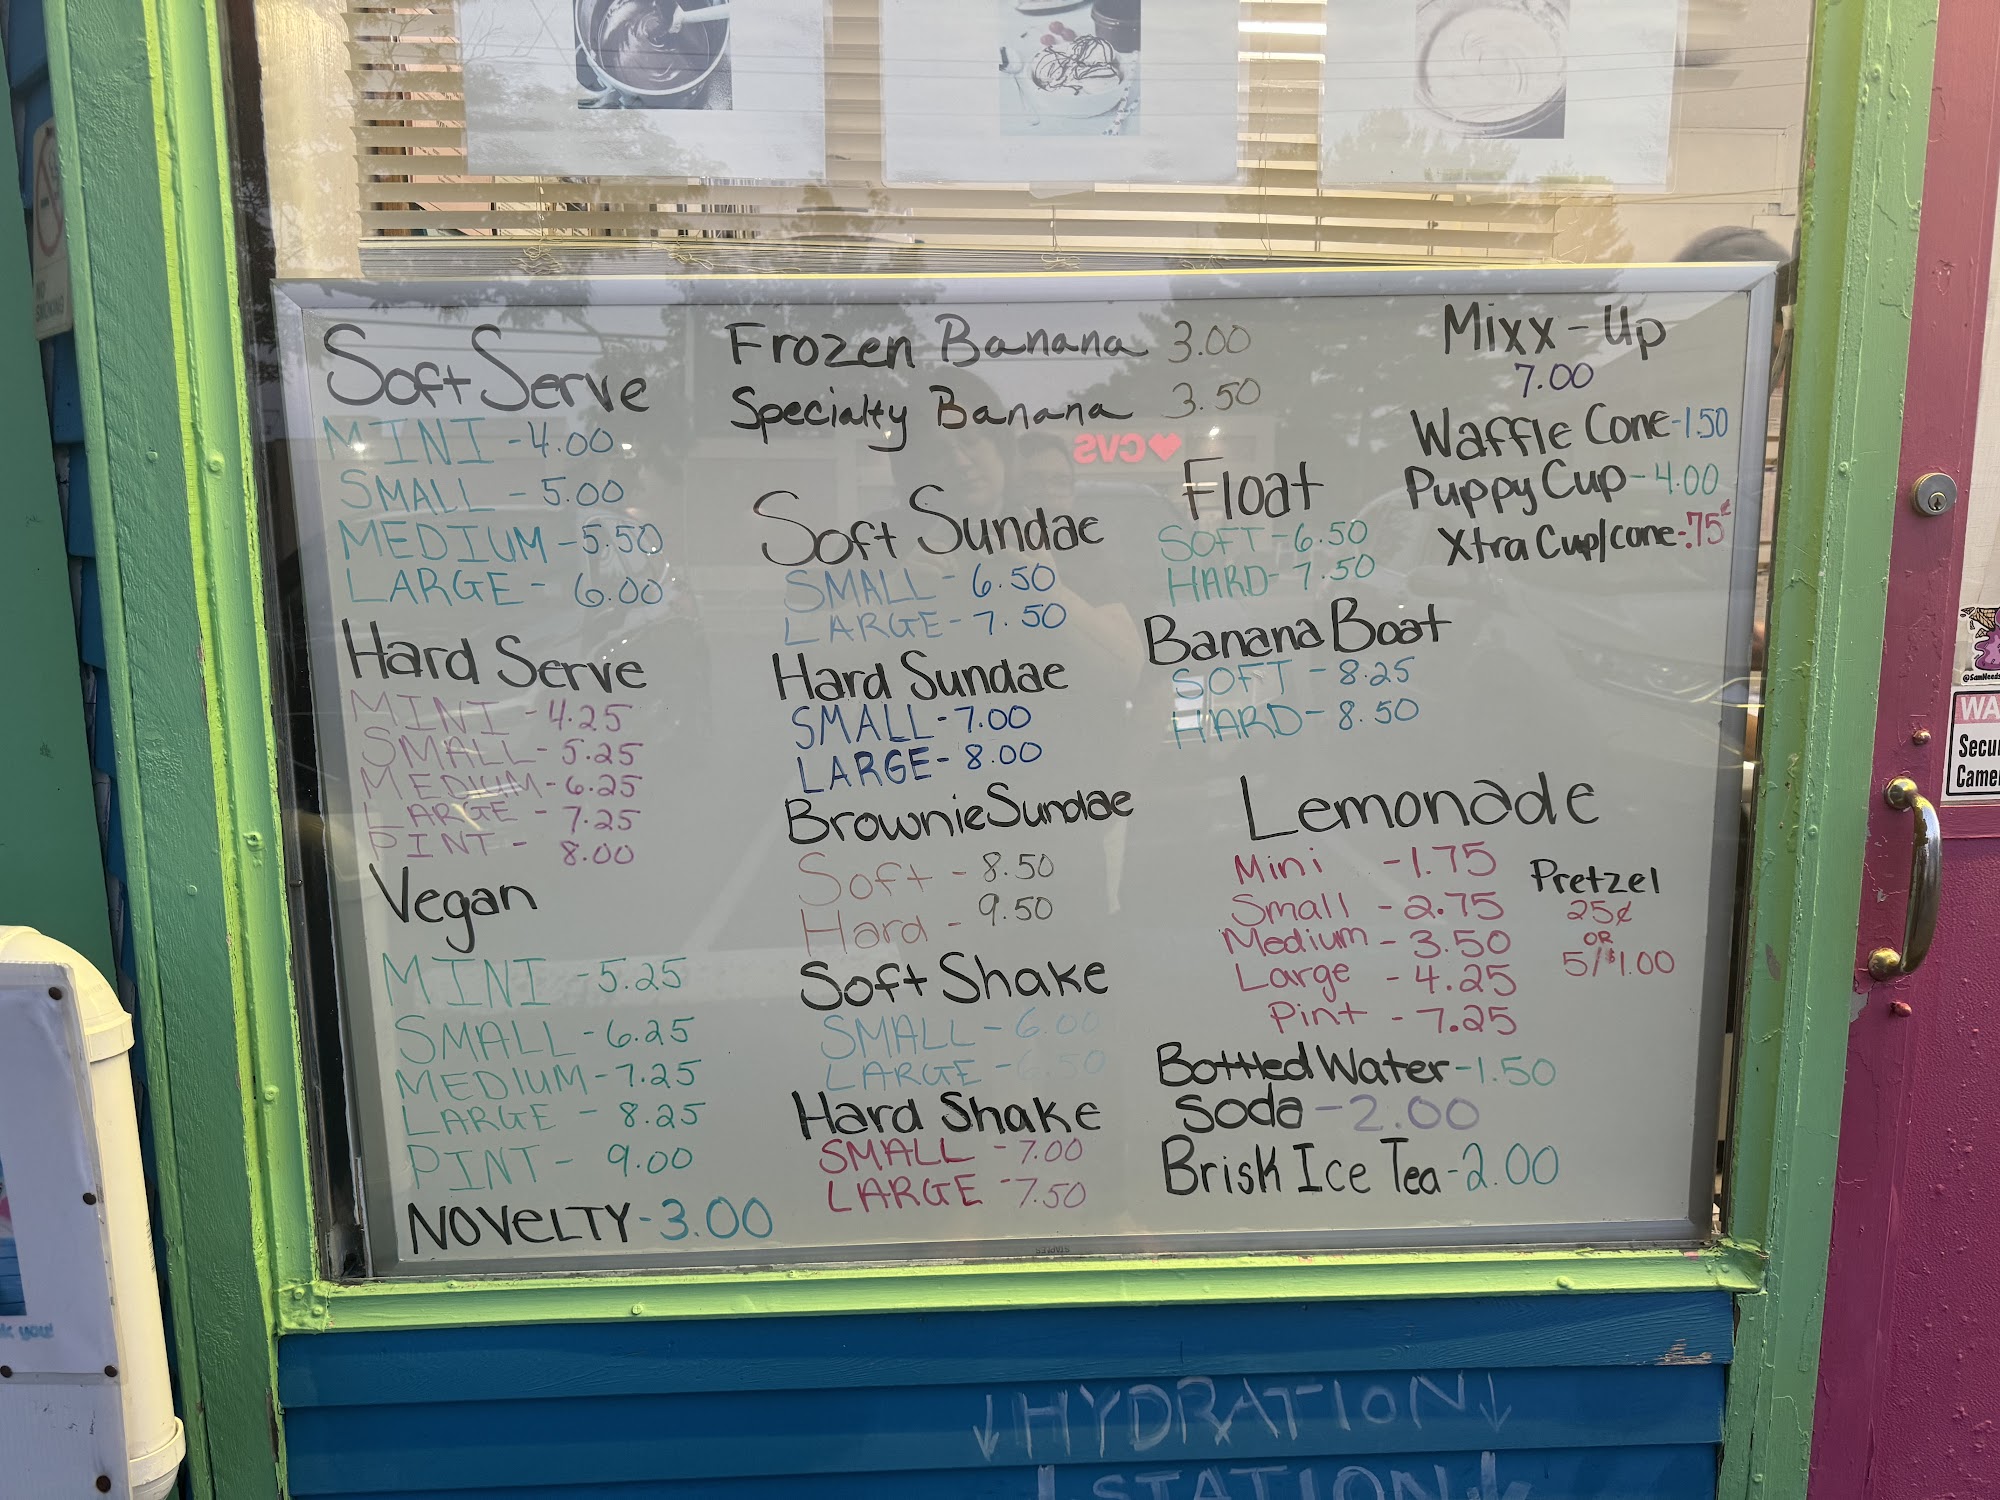 Soft Serve
MINI - 4.00
SMALL - 5.00
MEDIUM - 5.50
LARGE - 6.00
Hard Serve
MINI - 4.25
SMALL - 5.25
MEDIUM - 6.25
LARGE - 7.25
PINT - 8.00
Vegan
MINI - 5.25
SMALL - 6.25
MEDIUM - 7.25
LARGE - 8.25
PINT - 9.00
NOVELTY - 3.00
Frozen Banana 3.00
Specialty Banana 3.50
CVS
Soft Sundae
SMALL - 6.50
LARGE - 7.50
Hard Sundae
SMALL - 7.00
LARGE - 8.00
Brownie Sundae
Soft - 8.50
Hard - 9.50
Soft Shake
SMALL - 6.00
LARGE - 6.50
Hard Shake
SMALL - 7.00
LARGE - 7.50
Float
SOFT - 6.50
HARD - 7.50
Banana Boat
SOFT - 8.25
HARD - 8.50
Mixx-Up
7.00
Waffle Cone - 1.50
Puppy Cup - 4.00
Xtra Cup/cone - .75¢
Lemonade
Mini - 1.75
Small - 2.75
Medium - 3.50
Large - 4.25
Pint - 7.25
Pretzel
25¢
OR
5/$1.00
Bottled Water - 1.50
Soda - 2.00
Brisk Ice Tea - 2.00
STAPLES
↓HYDRATION↓
STATION
NO
SMOKING
you!
WA
Secu
Came